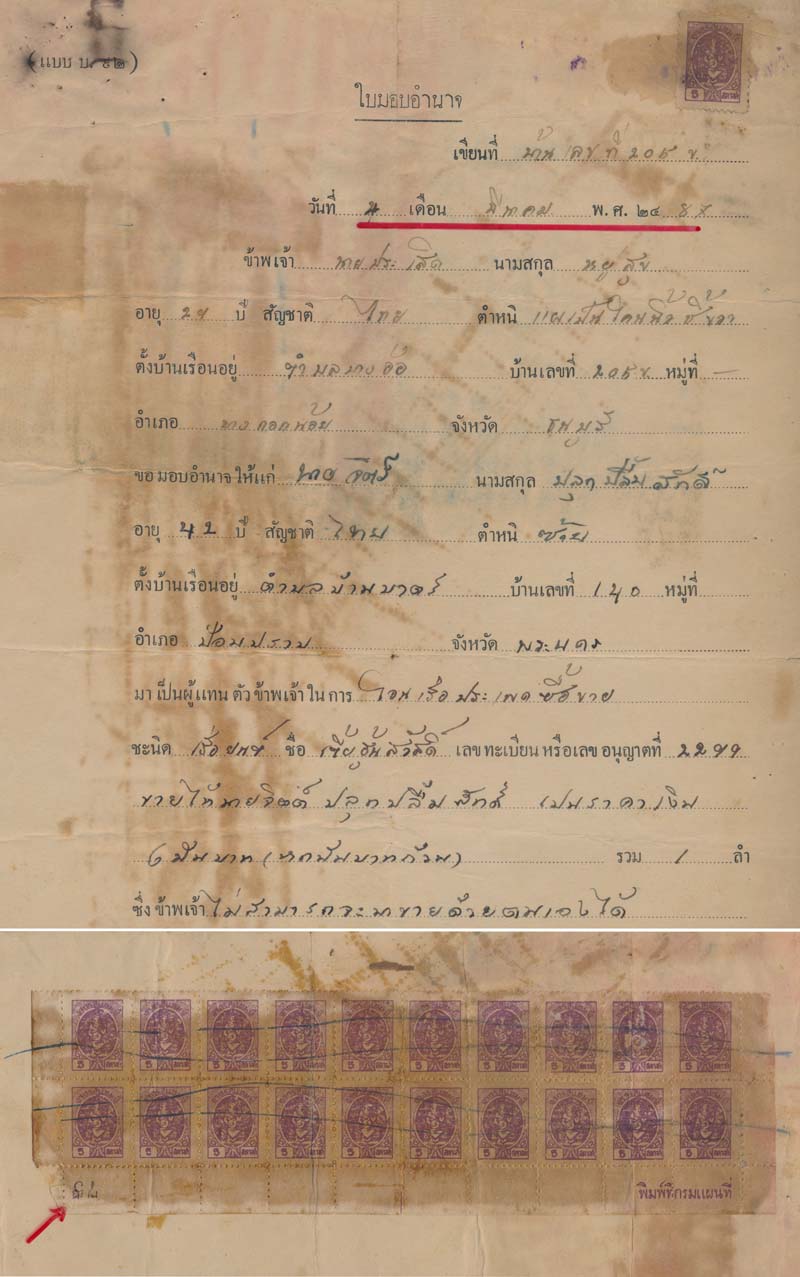 (แบบ บ/๕๒)
ใบมอบอำนาจ
เขียนที่ บ้านเลขที่ ๒๐๕ ข.
วันที่ เดือน มีนาคม พ.ศ. ๒๔
ข้าพเจ้า นายประเสิด นามสกุล หยูสุข
อายุ ปี สัญชาติ ไทย ตำหนิ แผลเป็น
ตั้งบ้านเรือนอยู่ ตำบลบางอ้อ บ้านเลขที่ ๒๐๕ ข. หมู่ที่ —
อำเภอ บางกอกน้อย จังหวัด ธนบุรี
ขอมอบอำนาจให้แก่ นามสกุล ปลูกปลื้มศักดิ์
อายุ ๔๒ ปี สัญชาติ ไทย ตำหนิ
ตั้งบ้านเรือนอยู่ ตำบลบ้านบาตร์ บ้านเลขที่ ๑๖๐ หมู่ที่
อำเภอ ป้อมปราบ จังหวัด พระนคร
มาเป็นผู้แทนตัวข้าพเจ้าในการ โอนเรือประเพดซื้อขาย
ชะนิด เรือยนต์ ชื่อ เลขทะเบียนหรือเลขอนุญาตที่
ขายให้นายจิตต์ ปลูกปลื้มศักดิ์ เปนราคาเงิน
พันบาท (หกพันบาทถ้วน) รวม ๑ ลำ
ซึ่งข้าพเจ้า ไม่สามารถจะมาขายด้วยตนเองได้
พิมพ์ที่กรมแผนที่